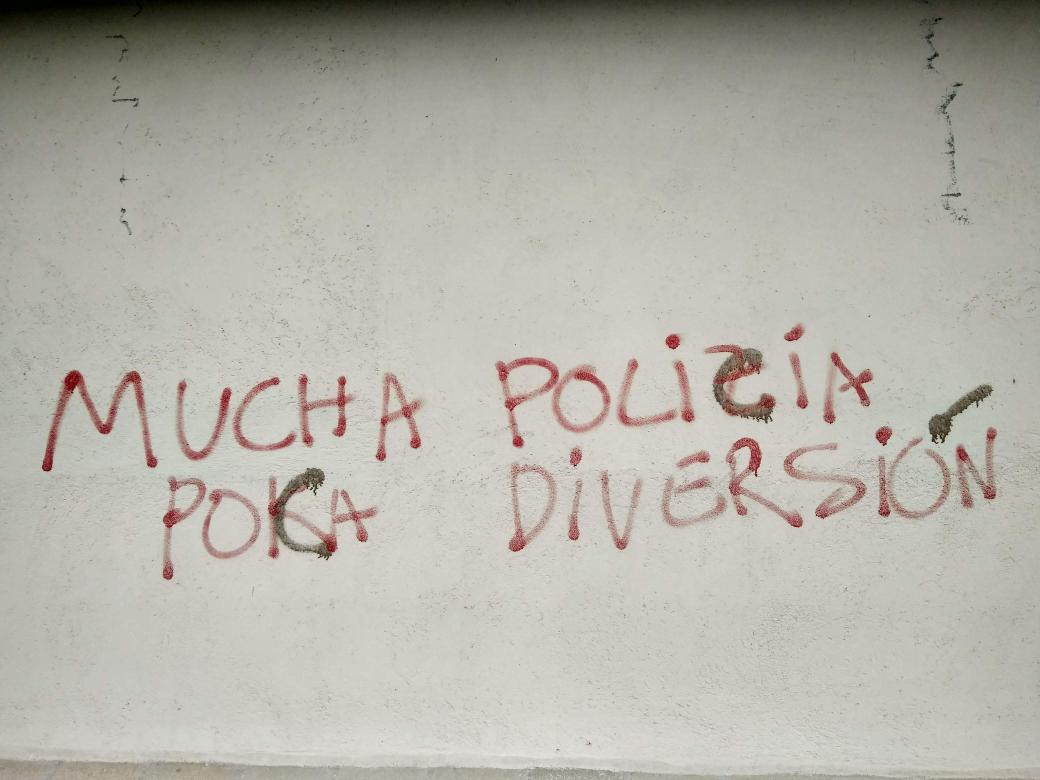 MUCHA POLICÍA
POCA DIVERSIÓN